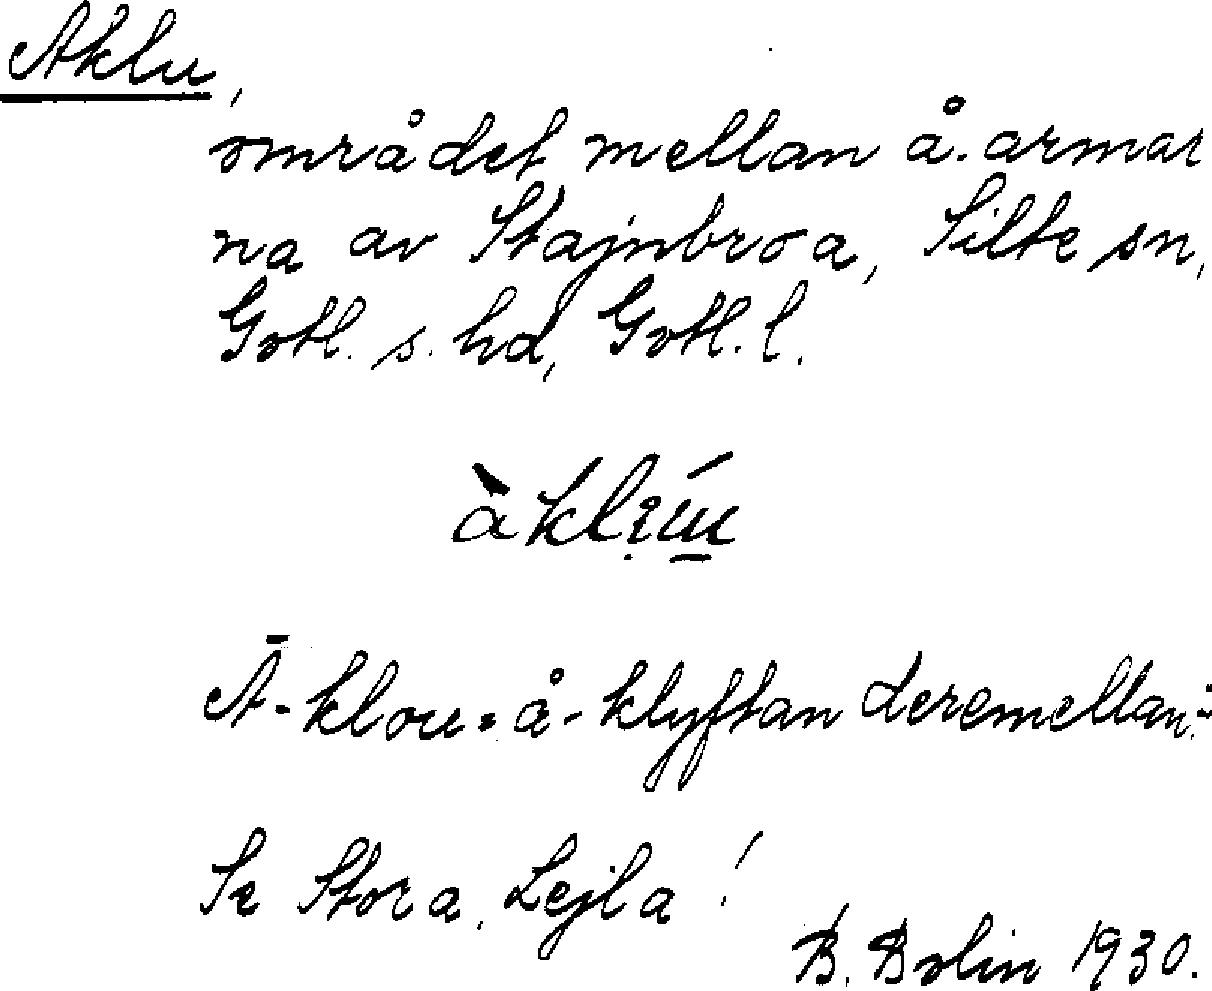 Aklu,
området mellan å.armar
na av Stajnbroa, Silte sn,
Gotl. s. hd, Gotl. l.
Ā-klou = å-klyftan deremellan.-
Se Stora, Lejla!
B. Bolin 1930.